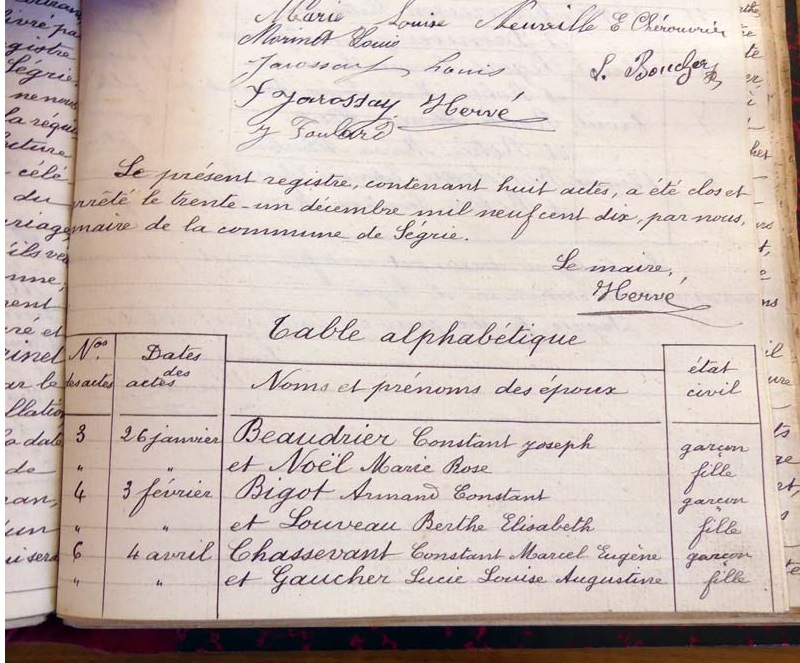 Marie Louise Neuville E Chérouvrier
Morinet Louis
Jarossay Louis L. Boucher
F Jarossay Hervé
J Foulard
Le présent registre, contenant huit actes, a été clos et
arrêté le trente-un décembre mil neuf cent dix, par nous,
maire de la commune de Ségrie.
Le maire,
Hervé
Table alphabétique
Nos des actes Dates des actes Noms et prénoms des époux état civil
3 26 janvier Beaudrier Constant Joseph garçon
" " et Noël Marie Rose fille
4 3 février Bigot Armand Constant garçon
" " et Louveau Berthe Elisabeth fille
6 4 avril Chassevant Constant Marcel Eugène garçon
" " et Gaucher Lucie Louise Augustine fille